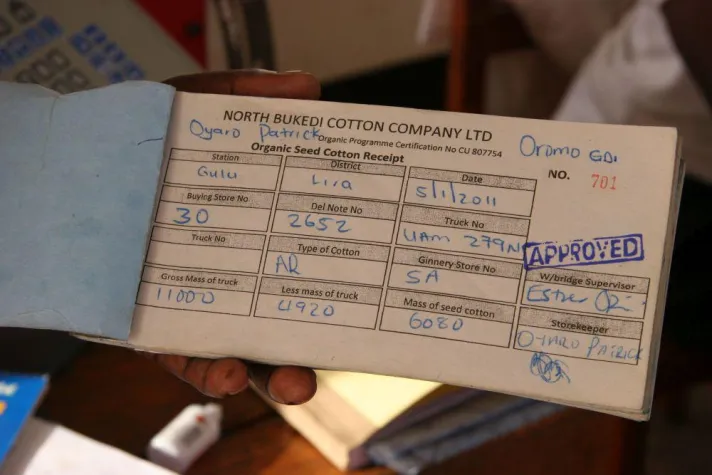 NORTH BUKEDI COTTON COMPANY LTD
Oyaro Patrick
Organic Programme Certification No CU 807754
Oromo GDI
Organic Seed Cotton Receipt
NO. 701
Station District Date
Gulu Lira 5/1/2011
Buying Store No Del Note No Truck No
30 2652 UAM 279N
APPROVED
Truck No Type of Cotton Ginnery Store No W/bridge Supervisor
AR SA Esther
Gross Mass of truck Less mass of truck Mass of seed cotton Storekeeper
11000 4920 6080 OYARO PATRICK